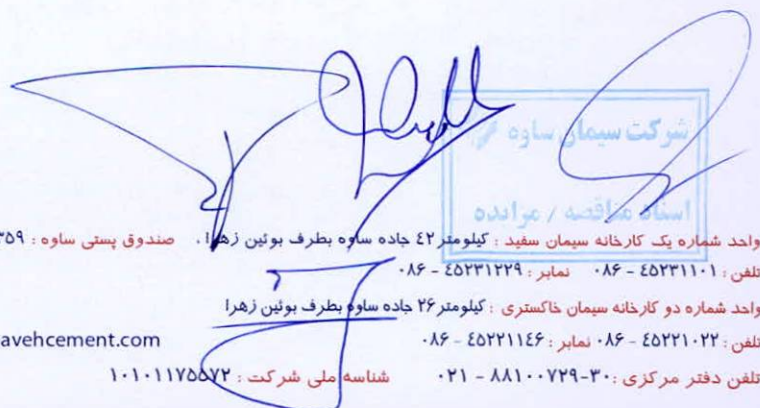 شرکت سیمان ساوه
اسناد مناقصه / مزایده
واحد شماره یک کارخانه سیمان سفید : کیلومتر ٤٢ جاده ساوه بطرف بوئین زهرا . صندوق پستی ساوه : ۳۵۹
تلفن : ٤٥٢٣١١٠١ - ٠٨۶ نمابر : ٤٥٢٣١٢٢٩ - ٠٨۶
واحد شماره دو کارخانه سیمان خاکستری : کیلومتر ۲۶ جاده ساوه بطرف بوئین زهرا
تلفن : ٤٥٢٢١٠٢٢ - ٠٨۶ نمابر : ٤٥٢٢١١٤۶ - ٠٨۶ avehcement.com
تلفن دفتر مرکزی : ۳۰-۸۸۱۰۰۷۲۹ - ۰۲۱ شناسه ملی شرکت : ۱۰۱۰۱۱۷۵۵۷۲